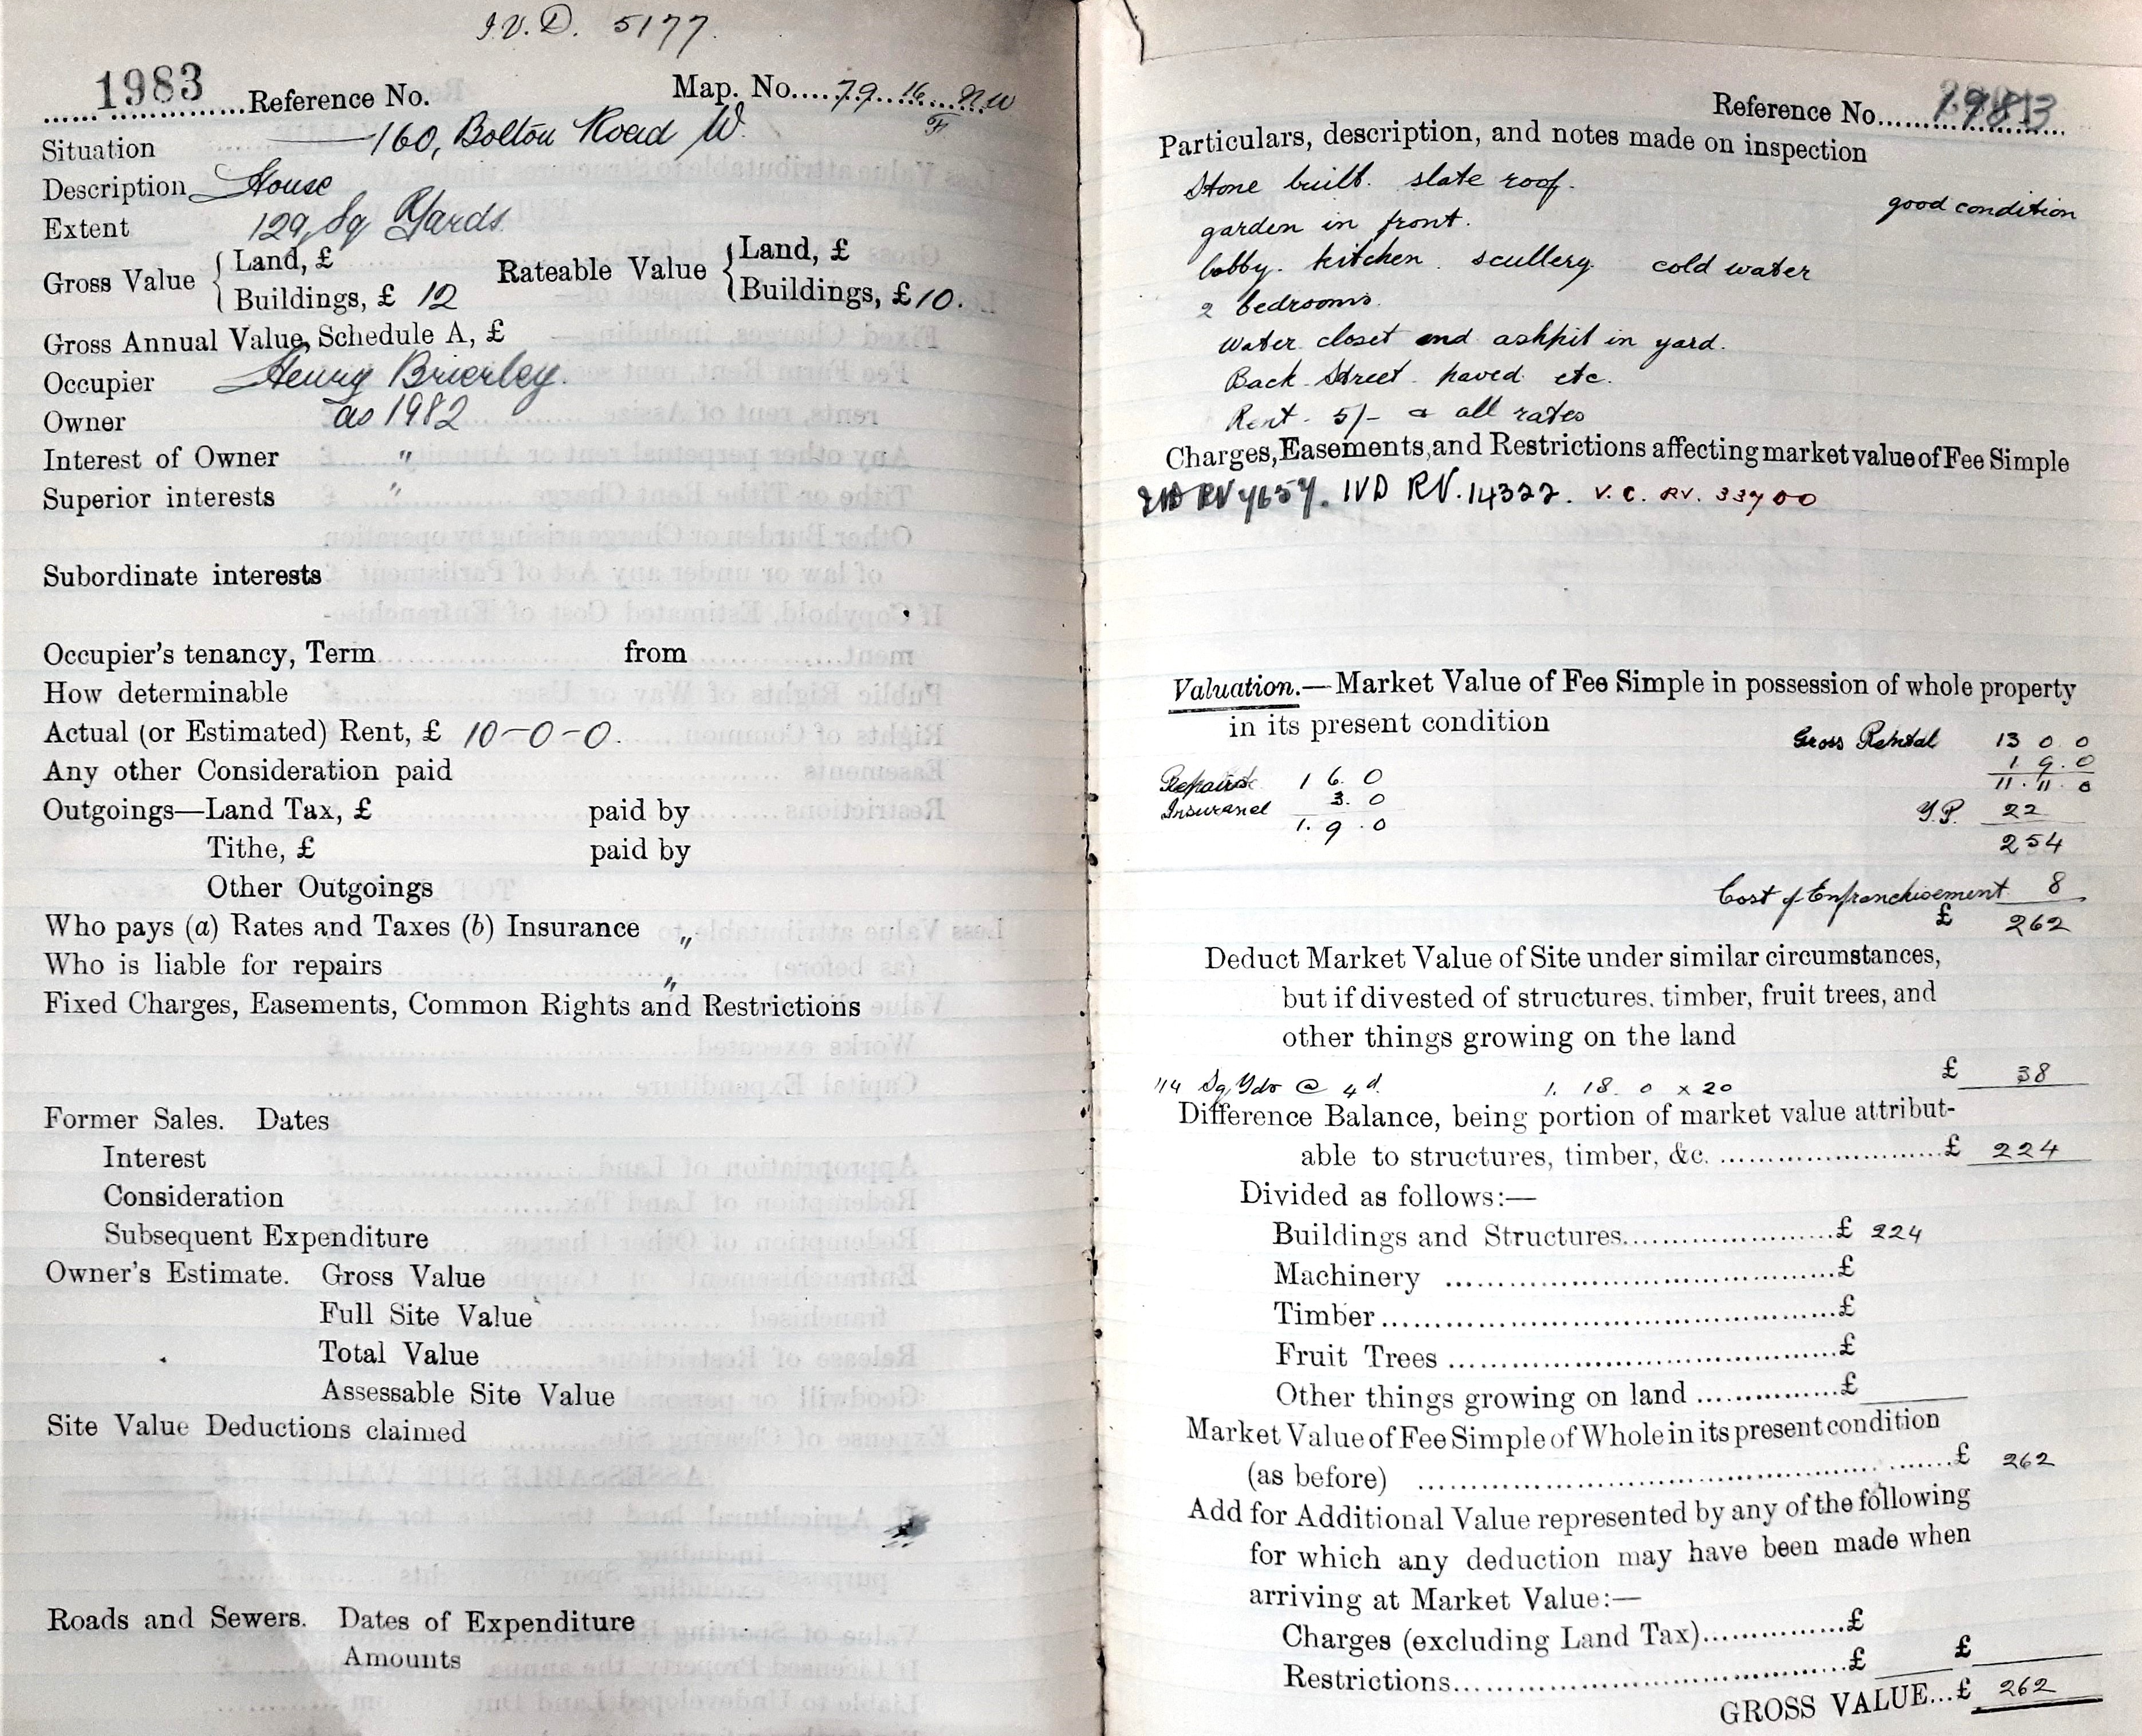 I.V.D. 5177.
1983 Reference No. Map. No. 79 16 NW
F
Situation 160, Bolton Road W.
Description House
Extent 129 Sq Yards
Gross Value { Land, £ Rateable Value { Land, £
Buildings, £ 12 Buildings, £ 10.
Gross Annual Value, Schedule A, £
Occupier Henry Brierley.
Owner as 1982
Interest of Owner "
Superior interests "
Subordinate interests
Occupier's tenancy, Term from
How determinable
Actual (or Estimated) Rent, £ 10-0-0.
Any other Consideration paid
Outgoings—Land Tax, £ paid by
Tithe, £ paid by
Other Outgoings
Who pays (a) Rates and Taxes (b) Insurance "
Who is liable for repairs "
Fixed Charges, Easements, Common Rights and Restrictions
Former Sales. Dates
Interest
Consideration
Subsequent Expenditure
Owner's Estimate. Gross Value
Full Site Value
Total Value
Assessable Site Value
Site Value Deductions claimed
Roads and Sewers. Dates of Expenditure
Amounts
Reference No. 1983
Particulars, description, and notes made on inspection
Stone built. slate roof.
good condition
garden in front.
lobby. kitchen. scullery. cold water
2 bedrooms.
water closet and ashpit in yard.
Back Street paved etc.
Rent. 5/- & all rates
Charges, Easements, and Restrictions affecting market value of Fee Simple
IVD RV.14322. V.C. RV. 33700
Valuation.—Market Value of Fee Simple in possession of whole property
in its present condition
Gross Rental 13 0 0
1. 9. 0
Repairs 1 6. 0 11. 11. 0
Insurance 3. 0 Y.P. 22
1. 9. 0
254
Cost of Enfranchisement 8
£ 262
Deduct Market Value of Site under similar circumstances,
but if divested of structures, timber, fruit trees, and
other things growing on the land
114 Sq Yds @ 4d. 1. 18. 0 x 20 £ 38
Difference Balance, being portion of market value attribut-
able to structures, timber, &c. £ 224
Divided as follows:—
Buildings and Structures £ 224
Machinery £
Timber £
Fruit Trees £
Other things growing on land £
Market Value of Fee Simple of Whole in its present condition
(as before) £ 262
Add for Additional Value represented by any of the following
for which any deduction may have been made when
arriving at Market Value:—
Charges (excluding Land Tax) £
Restrictions £ £
GROSS VALUE...£ 262